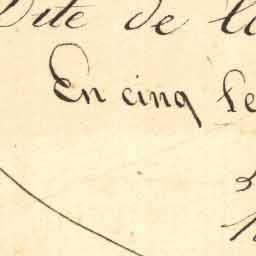 Dite de la
En cinq Fe